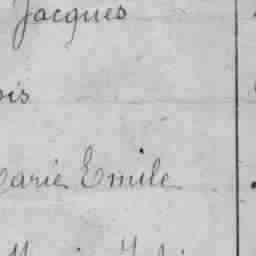 Jacques
ois
Marie Emile